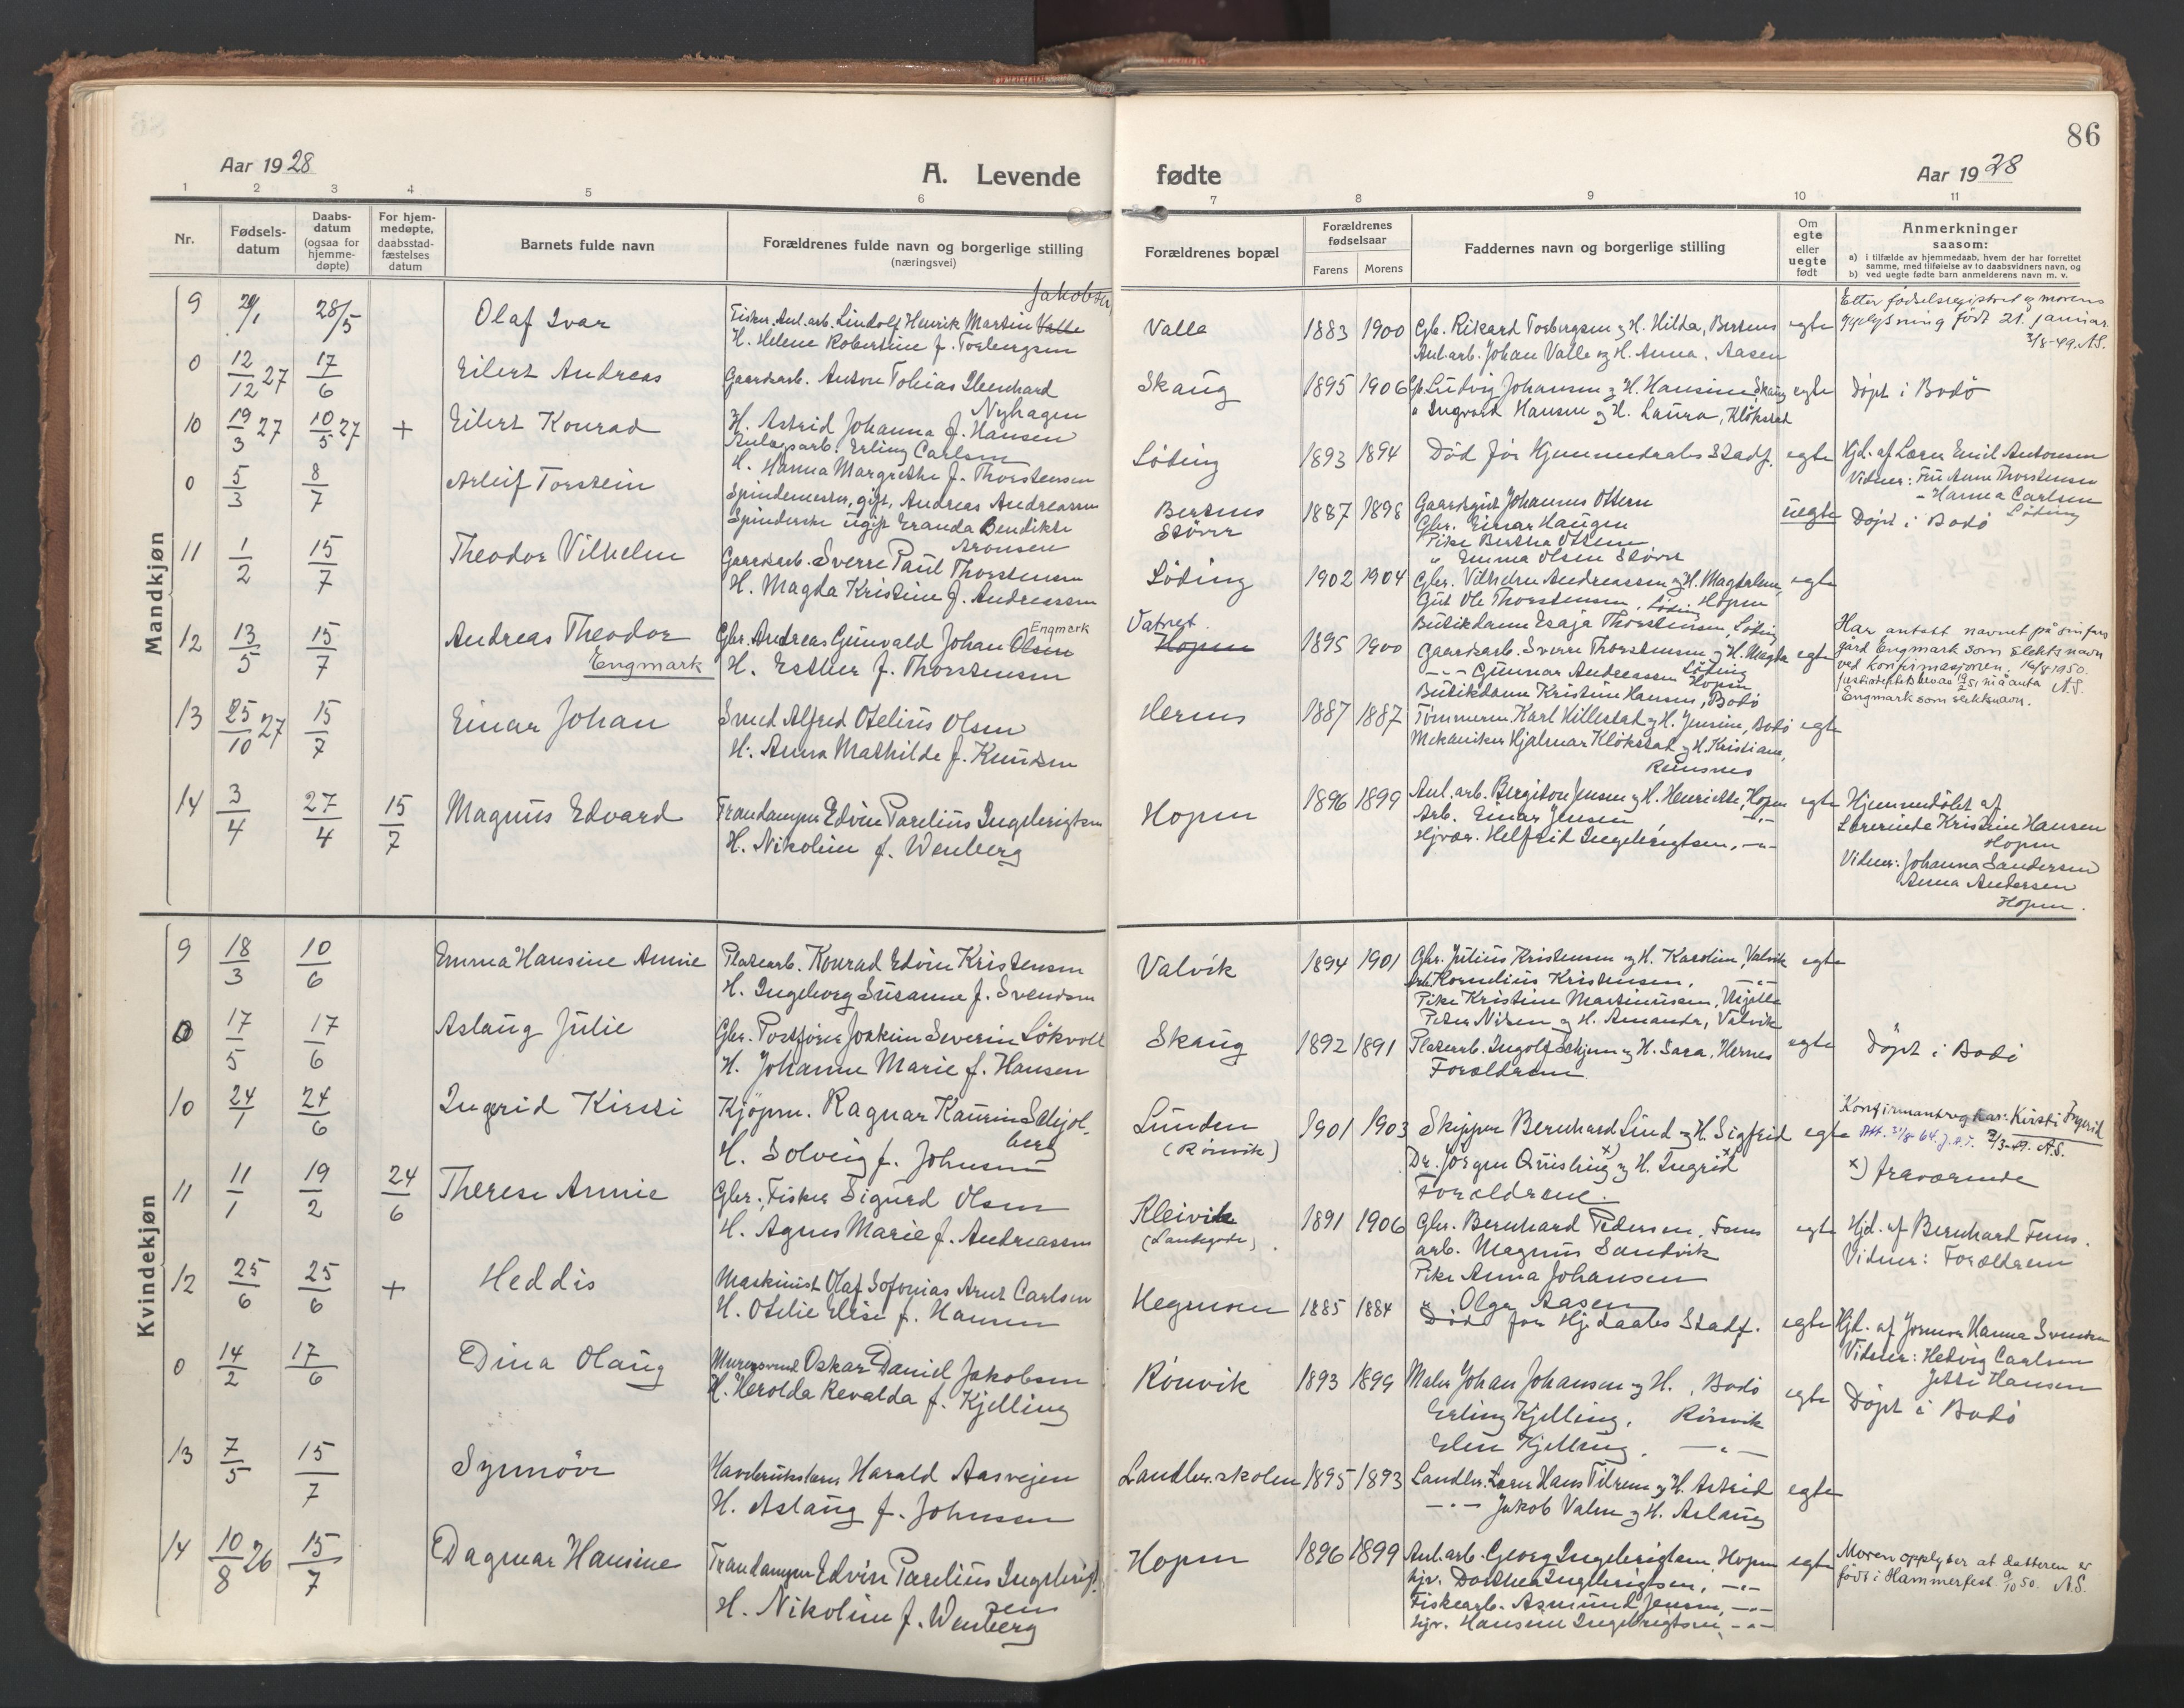 86
Aar 1928
A. Levende
fødte
Aar 1928
1 2 3 4 5 6 7 8 9 10 11
Nr.
Fødsels-
datum
Daabs-
datum
(ogsaa for
hjemme-
døpte)
For hjem-
medøpte,
daabsstad-
fæstelses
datum
Barnets fulde navn
Forældrenes fulde navn og borgerlige stilling
(næringsvei)
Forældrenes bopæl
Forældrenes
fødselsaar
Farens Morens
Faddernes navn og borgerlige stilling
Om
egte
eller
uegte
født
Anmerkninger
saasom:
a) i tilfælde av hjemmedaab, hvem der har forrettet
samme, med tilføielse av to daabsvidners navn, og
b) ved uegte fødte barn anmelderens navn m. v.
Mandkjøn
9 28/5 Olaf Ivar
Jakobsen
Fisker, Anl.arb. Lindolf Henrik Martin Valle
H. Helene Robertine f. Torbergsen
Valle 1883 1900
Gbr. Rikard Torbergsen og H. Hilda, Bertnes
Anl.arb. Johan Valle og H. Anna, Aasen
egte
Etter fødselsregistret og morens
opplysning født 21. januar.
3/8-49. A.S.
0 12/12 27 17/6 Eilert Andreas
Gaardsarb. Anton Tobias
Nyhagen
H. Astrid Johanna f. Hansen
Skaug 1895 1906
Gb. Ludvig Johansen og H. Hansine, Skaug
" Ingvard Hansen og H. Laura, Klökstad
egte
Døpt i Bodö
10 19/3 27 10/5 27 + Eilert Konrad
Anlægsarb. Erling Carlsen
H. Hanna Margrethe f. Thorstensen
Löding 1893 1894
Död før Hjemmedaabs Stadf.
egte
Hjd. af Lærer Emil Antonsen
Vidner: Fru Anna Thorstensen
- Hanna Carlsen
Löding
0 5/3 8/7 Arleif Torstein
Spindemester, gift, Andreas Andreassen
Spinderske ugift Eranda Bendikte
Aronsen
Bertnes
Större
1887 1898
Gaardsgut Johannes Ottern
Gbr. Einar Haugen
Pike Bertha Olsen
" Emma Olsen Större
uegte
Døpt i Bodö
11 1/2 15/7 Theodor Vilhelm
Gaardsarb. Sverre Paul Thorstensen
H. Magda Kristine f. Andreassen
Löding 1902 1904
Gbr. Vilhelm Andreassen og H. Magdalena,
Hopen
Gut Ole Thorstensen, Löding
Butikdame Esaja Thorstensen, Löding
egte
12 13/5 15/7 Andreas Theodor
Engmark
Engmark
Gbr. Andreas Gunvald Johan Olsen
H. Esther f. Thorstensen
Vatnet
Hopen
1895 1900
Gaardsarb. Sverre Thorstensen og H. Magda
Löding
-"- Gunnar Andreassen Hopen
Butikdame Kristine Hansen, Bodö
egte
Har antatt navnet på sin fars
gård Engmark som slektsnavn
ved konfirmasjonen. 16/8 1950
A.S.
Engmark som slektsnavn.
13 25/10 27 15/7 Einar Johan
Smed Alfred Otelius Olsen
H. Anna Mathilde f. Knudsen
Hernes 1887 1887
Tømmerm. Karl Hillestad og H. Jensine, Bodö
Mekaniker Hjalmar Klökstad og H. Kristiane,
Reinsnes
egte
14 3/4 27/4 15/7 Magnus Edvard
Trandamper Edvin Parelius Ingebrigtsen
H. Nikoline f. Wenberg
Hopen 1896 1899
Anl.arb. Bergiton Jensen og H. Henriette, Hopen
Arb. Einar Jensen, -"-
Hjvær. Helfrid Ingebrigtsen, -"-
egte
Hjemmedöbt af
Lærerinde Kristine Hansen
Hopen
Vidner: Johanna Sandersen
Anna Andersen
Hopen.
Kvindekjøn
9 18/3 10/6 Emma Hansine Annie
Pladsarb. Konrad Edvin Kristensen
H. Ingeborg Susanne f. Svendsen
Valvik 1894 1901
Gbr. Julius Kristensen og H. Karoline, Valvik
Arb. Kornelius Kristensen, -"-
Pike Kristine Martinussen,
Peter Nilsen og H. Amanda, Valvik
egte
0 17/5 17/6 Aslaug Julie
Gbr. Postfører Joakim Severin Lökvoll
H. Johanne Marie f. Hansen
Skaug 1892 1891
Pladsarb. Ingolf Schjem og H. Sara, Hernes
Forældrene
egte
Døpt i Bodö
10 24/1 24/6 Ingrid Kirsti
Kjöpm. Ragnar Kaurin Schjel-
berg
H. Solveig f. Johnsen
Lunden
(Rönvik)
1901 1903
Skipper Bernhard Lind og H. Sigfrid
Dr. Jörgen Quisling x) og H. Ingrid x
Forældrene.
egte
Konfirmantreg har: Kirsti Ingerid
2/3-49. A.S.
x) fraværende
11 11/1 19/2 24/6 Therese Annie
Gbr., Fisker Sigurd Olsen
H. Agnes Marie f. Andreassen
Kleivik
(Landegode).
1891 1906
Gbr. Bernhard Pedersen, Fenes
arb. Magnus Sandvik
Pike Anna Johansen
" Olga Aasen
egte
Hjd. af Bernhard Fenes.
Vidner: Forældrene
12 25/6 25/6 + Heddis
Maskinist Olaf Sofonias Arnt Carlsen
H. Otelie Elise f. Hansen
Hegmoen 1885 1884
Död før Hj.daabs Stadf.
egte
Hjd. af Jormor Hanna Svendsen
Vidner: Hedvig Carlsen
Jetti Hansen
0 14/2 17/6 Dina Olaug
Murersvend Oskar Daniel Jakobsen
H. Herolda Revalda f. Kjelling
Rönvik 1893 1899
Maler Johan Johansen og H., Bodö
Erling Kjelling, Rönvik
Elin Kjelling, -"-
egte
Døpt i Bodö
13 7/5 15/7 Synnöve
Havebrukslærer Harald Aasvejen
H. Aslaug f. Johnsen
Landbr.skolen 1895 1893
Landbr. Lærer Hans Tilrem og H. Astrid
-"- Jakob Valen og H. Aslaug
egte
14 10/8 26 15/7 Dagmar Hansine
Trandamper Edvin Parelius Ingebrigt-
sen
H. Nikoline f. Wenberg
Hopen 1896 1899
Anl.arb. Georg Ingebrigtsen, Hopen
Hjv. Dorthea Ingebrigtsen, -"-
Fiskearb. Asmund Jensen, -"-
Hjv. Hansine Ingebrigtsen, -"-
egte
Moren opplyser at datteren er
født i Hammerfest. 9/10 50. A.S.